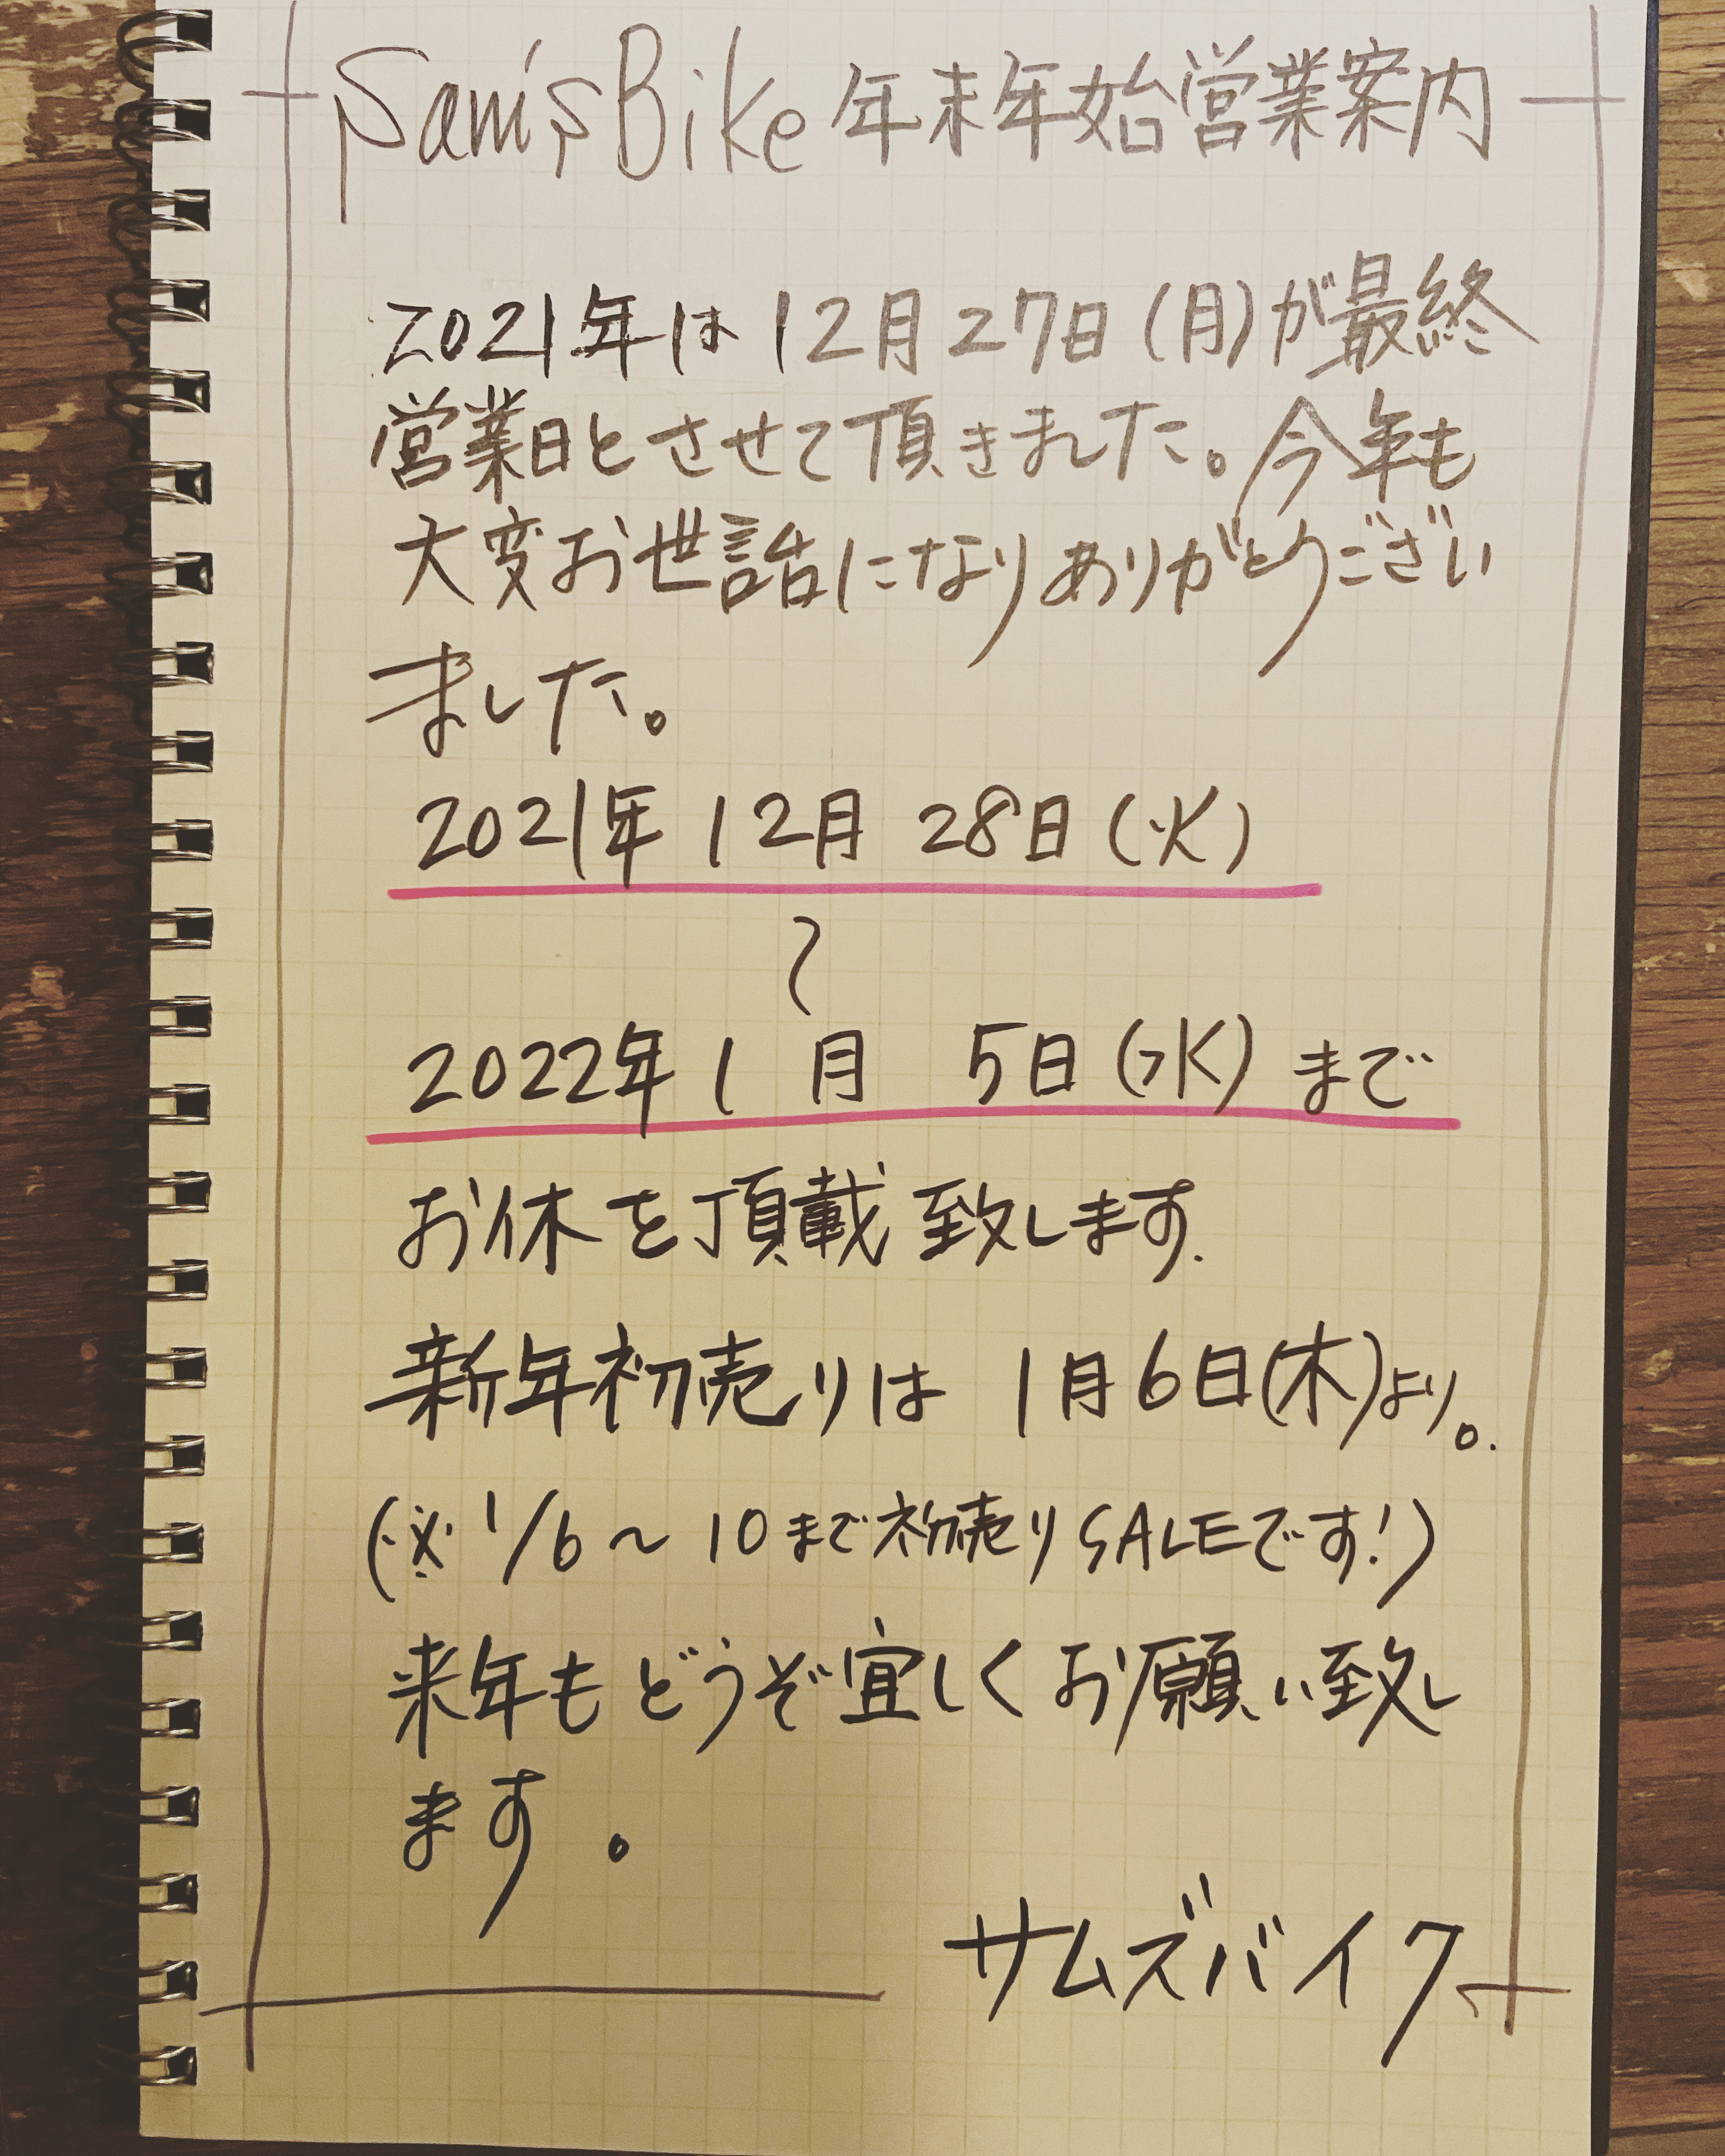 Sam's Bike 年末年始営業案内
2021年は12月27日(月)が最終
営業日とさせて頂きました。今年も
大変お世話になりありがとうござい
ました。
2021年12月28日(火)
〜
2022年1月5日(水)まで
お休を頂戴致します.
新年初売りは 1月6日(木)より。
(※1/6〜10まで初売りSALEです!)
来年もどうぞ宜しくお願い致し
ます。
サムズバイク